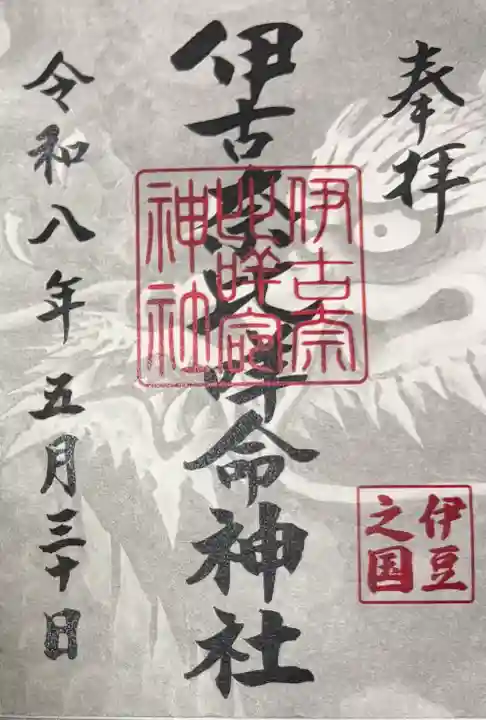 奉拝
伊古奈比咩命神社
伊古奈
比咩命
神社
伊豆
之国
令和八年五月三十日